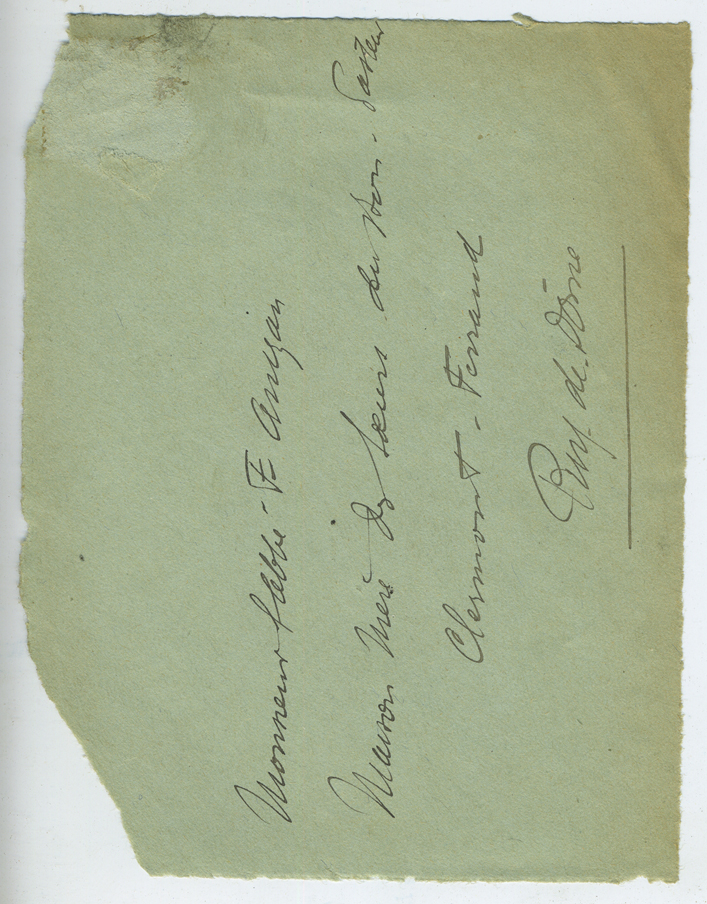 Monsieur l'abbé F Anizan
Maison Mère des Sœurs du Bon-Pasteur
Clermont-Ferrand
Puy-de-Dôme